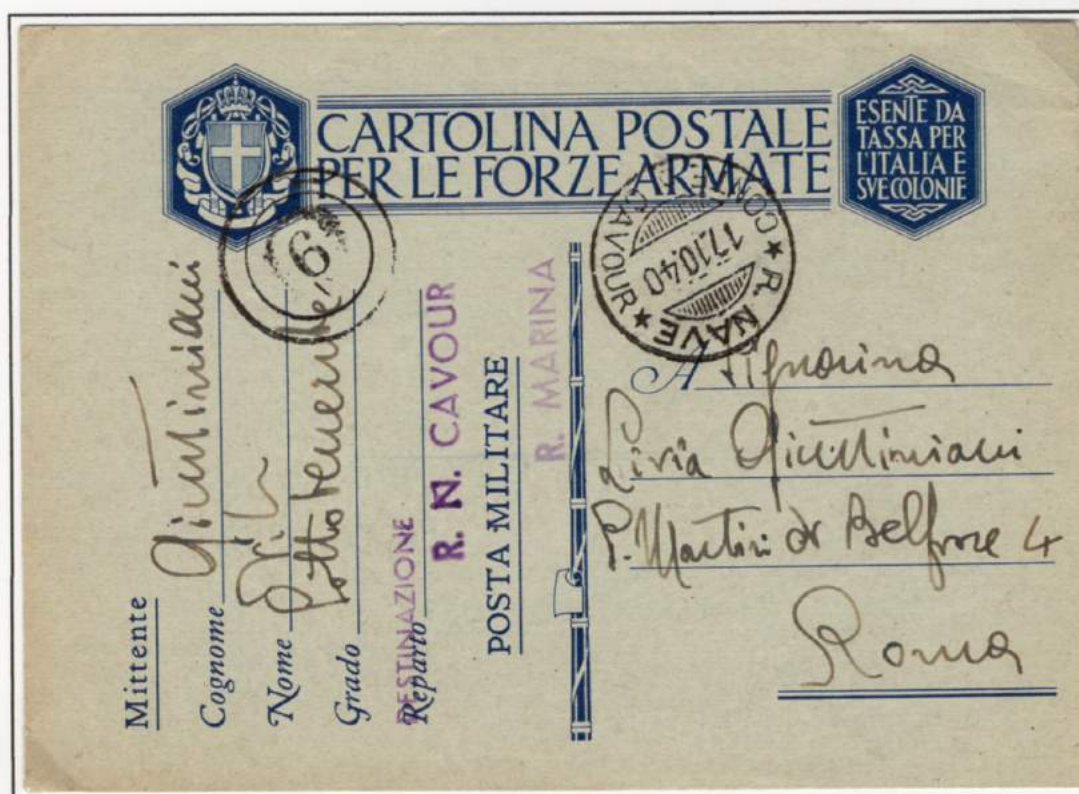 CARTOLINA POSTALE
PER LE FORZE ARMATE
ESENTE DA
TASSA PER
L'ITALIA E
SVE COLONIE
6
R. NAVE ★ CONTE CAVOUR ★
17.10.40
Mittente
Cognome Giustiniani
Nome
Grado Sottotenente
DESTINAZIONE
Reparto
R. N. CAVOUR
POSTA MILITARE
R. MARINA
A Signorina
Livia Giustiniani
P. Martiri di Belfiore 4
Roma